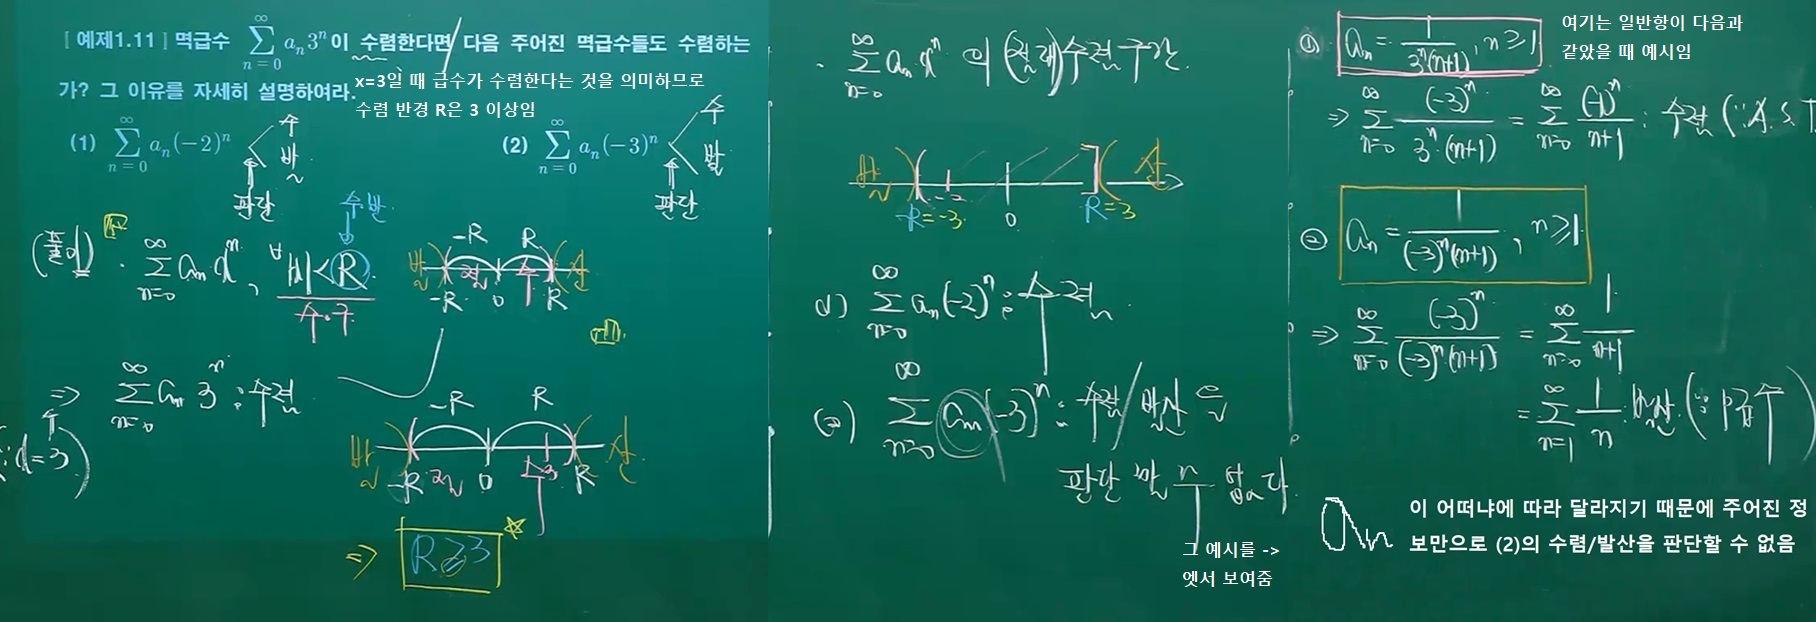 [예제1.11] 멱급수 \sum_{n=0}^{\infty} a_n 3^n 이 수렴한다면 다음 주어진 멱급수들도 수렴하는
가? 그 이유를 자세히 설명하여라.
x=3일 때 급수가 수렴한다는 것을 의미하므로
수렴 반경 R은 3 이상임
(1) \sum_{n=0}^{\infty} a_n(-2)^n 수 발 판단
(2) \sum_{n=0}^{\infty} a_n(-3)^n 수 발 판단
(풀이) · \sum_{n=0}^{\infty} a_n x^n, |x|<R 수반
수.구
-R R
발 수 산
-R 0 R
⇒ \sum_{n=0}^{\infty} a_n 3^n : 수렴
(∵x=3)
-R R
발 수 산
-R 0 3 R
⇒ R≥3
· \sum_{n=0}^{\infty} a_n x^n 의 (절대)수렴구간.
발 산
-2
R=-3 0 R=3
(1) \sum_{n=0}^{\infty} a_n(-2)^n : 수렴.
(2) \sum_{n=0}^{\infty} a_n(-3)^n : 수렴/발산은
판단할 수 없다.
그 예시를 ->
엣서 보여줌
여기는 일반항이 다음과
같았을 때 예시임
① a_n = \frac{1}{3^n(n+1)}, n≥1
⇒ \sum_{n=0}^{\infty} \frac{(-3)^n}{3^n·(n+1)} = \sum_{n=0}^{\infty} \frac{(-1)^n}{n+1} : 수렴 (∵A.S.T
② a_n = \frac{1}{(-3)^n(n+1)}, n≥1
⇒ \sum_{n=0}^{\infty} \frac{(-3)^n}{(-3)^n·(n+1)} = \sum_{n=0}^{\infty} \frac{1}{n+1}
= \sum_{n=1}^{\infty} \frac{1}{n} : 발산 (∵p급수)
a_n 이 어떠냐에 따라 달라지기 때문에 주어진 정
보만으로 (2)의 수렴/발산을 판단할 수 없음